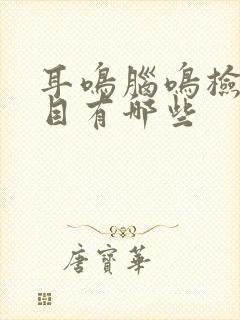 耳鳴腦鳴檢
目有哪些
唐寶華